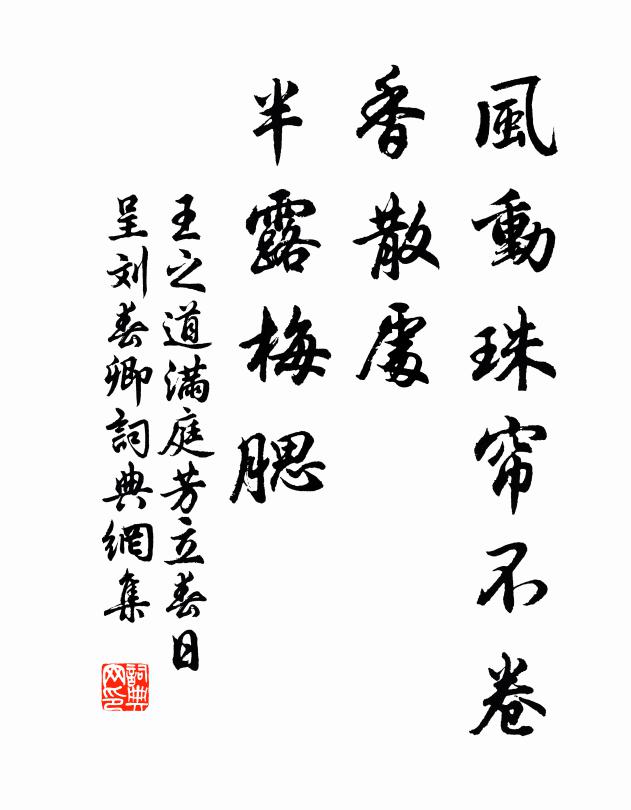 風動珠帘不卷
香散處
半露梅腮
王之道滿庭芳立春日
呈刘春卿詞典網集
詞典
网印